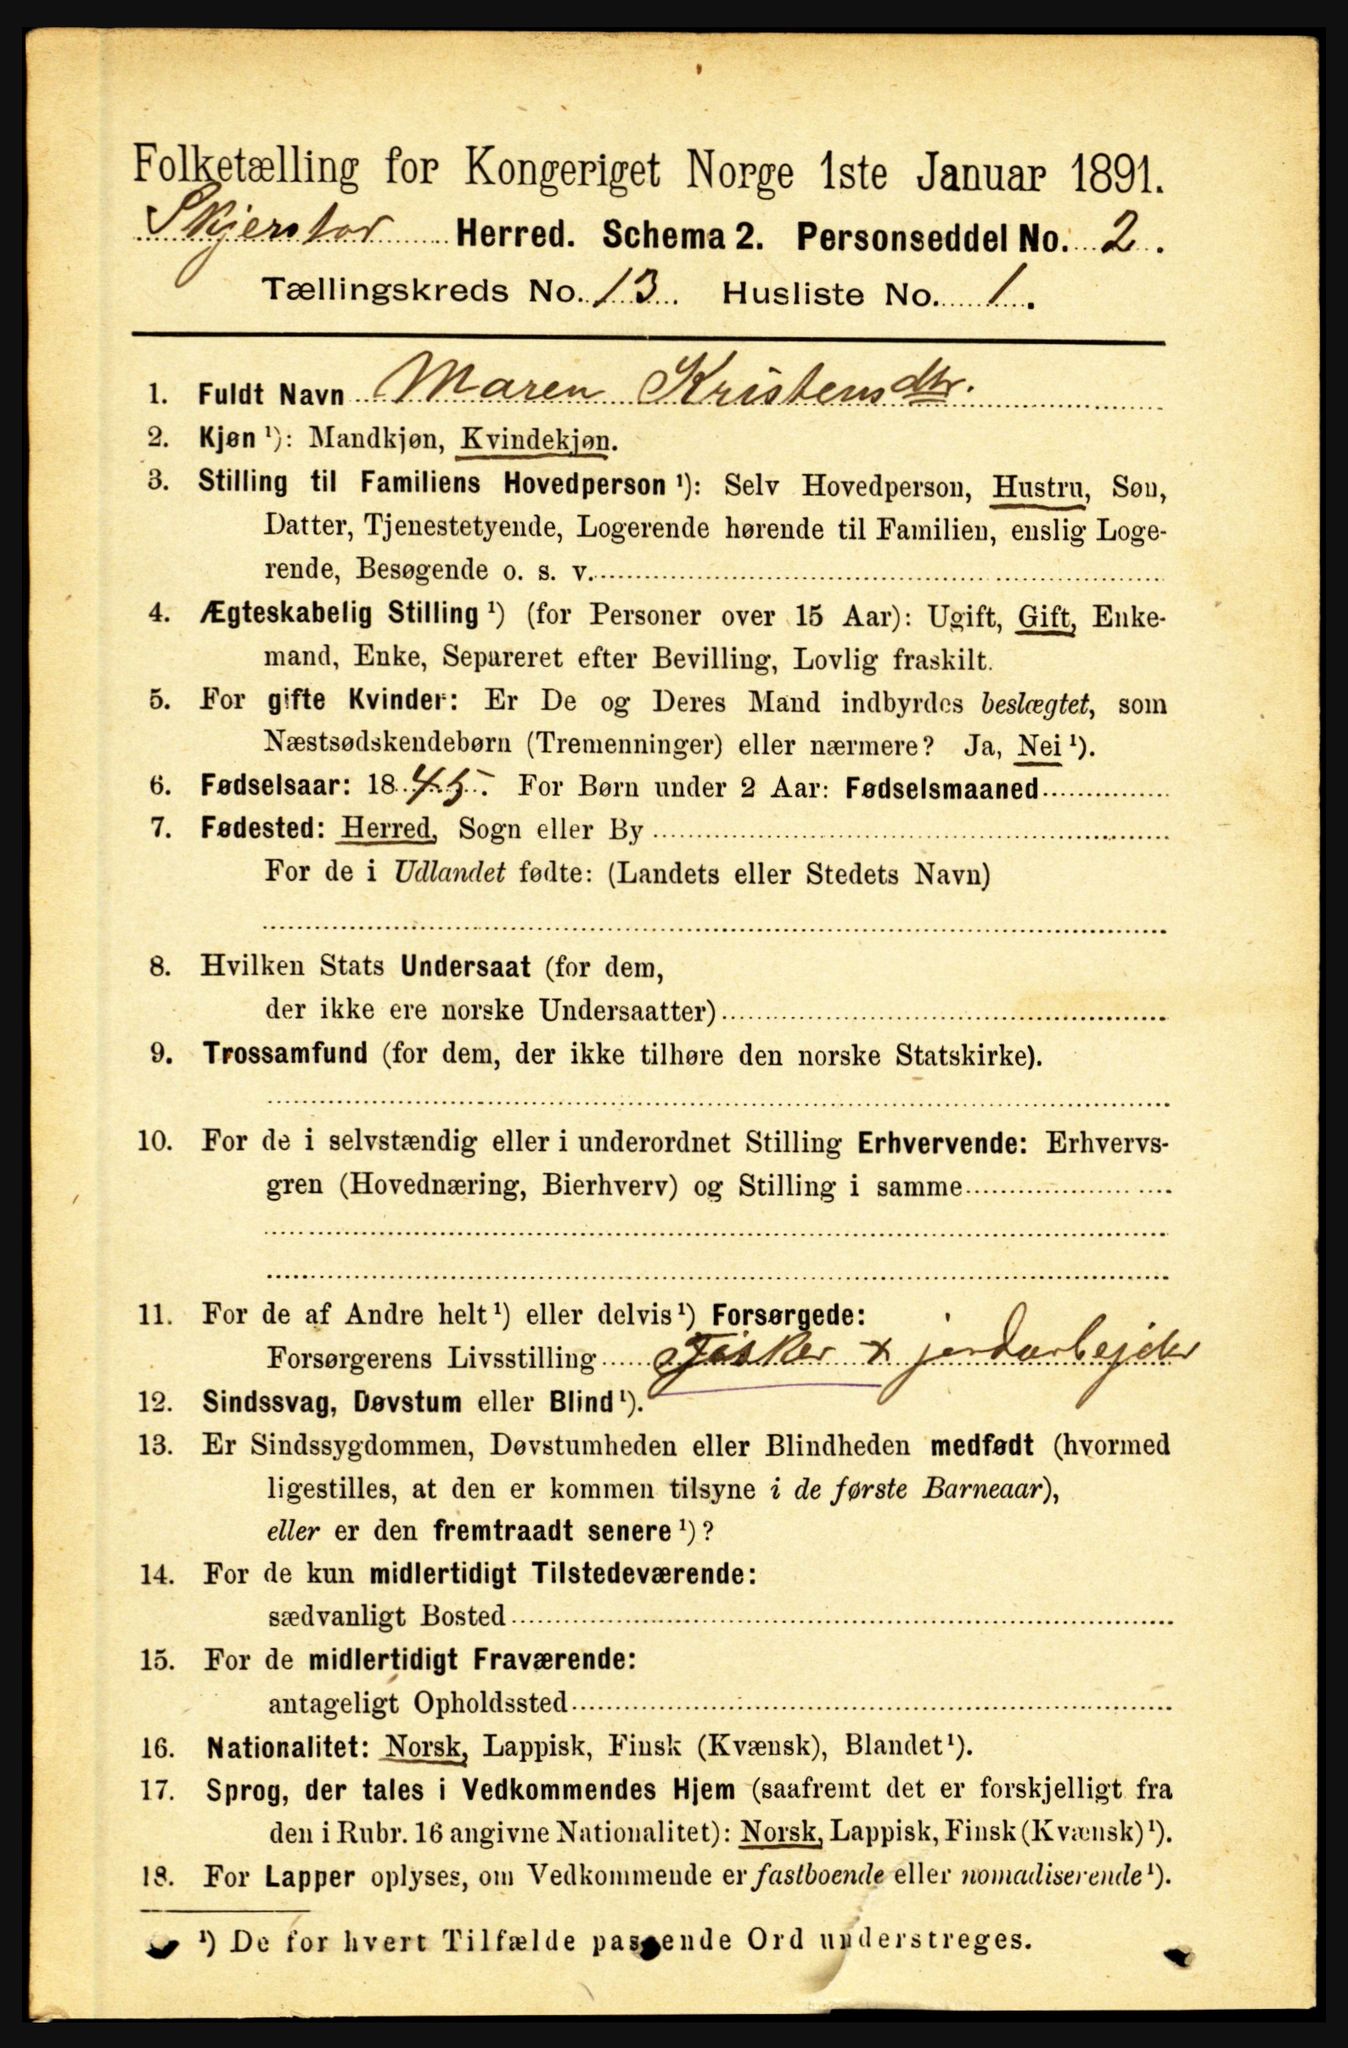 Folketælling for Kongeriget Norge 1ste Januar 1891.
Skjerstad Herred. Schema 2. Personseddel No. 2.
Tællingskreds No. 13. Husliste No. 1.
1. Fuldt Navn Maren Kristensdtr.
2. Kjøn ¹): Mandkjøn, Kvindekjøn.
3. Stilling til Familiens Hovedperson ¹): Selv Hovedperson, Hustru, Søn,
Datter, Tjenestetyende, Logerende hørende til Familien, enslig Loge-
rende, Besøgende o. s. v.
4. Ægteskabelig Stilling ¹) (for Personer over 15 Aar): Ugift, Gift, Enke-
mand, Enke, Separeret efter Bevilling, Lovlig fraskilt.
5. For gifte Kvinder: Er De og Deres Mand indbyrdes beslægtet, som
Næstsødskendebørn (Tremenninger) eller nærmere? Ja, Nei ¹).
6. Fødselsaar: 1845. For Børn under 2 Aar: Fødselsmaaned
7. Fødested: Herred, Sogn eller By
For de i Udlandet fødte: (Landets eller Stedets Navn)
8. Hvilken Stats Undersaat (for dem,
der ikke ere norske Undersaatter)
9. Trossamfund (for dem, der ikke tilhøre den norske Statskirke).
10. For de i selvstændig eller i underordnet Stilling Erhvervende: Erhvervs-
gren (Hovednæring, Bierhverv) og Stilling i samme
11. For de af Andre helt ¹) eller delvis ¹) Forsørgede:
Forsørgerens Livsstilling Fisker x jordarbejder
12. Sindssvag, Døvstum eller Blind ¹).
13. Er Sindssygdommen, Døvstumheden eller Blindheden medfødt (hvormed
ligestilles, at den er kommen tilsyne i de første Barneaar),
eller er den fremtraadt senere ¹)?
14. For de kun midlertidigt Tilstedeværende:
sædvanligt Bosted
15. For de midlertidigt Fraværende:
antageligt Opholdssted
16. Nationalitet: Norsk, Lappisk, Finsk (Kvænsk), Blandet ¹).
17. Sprog, der tales i Vedkommendes Hjem (saafremt det er forskjelligt fra
den i Rubr. 16 angivne Nationalitet): Norsk, Lappisk, Finsk (Kvænsk) ¹).
18. For Lapper oplyses, om Vedkommende er fastboende eller nomadiserende ¹).
¹) De for hvert Tilfælde passende Ord understreges.